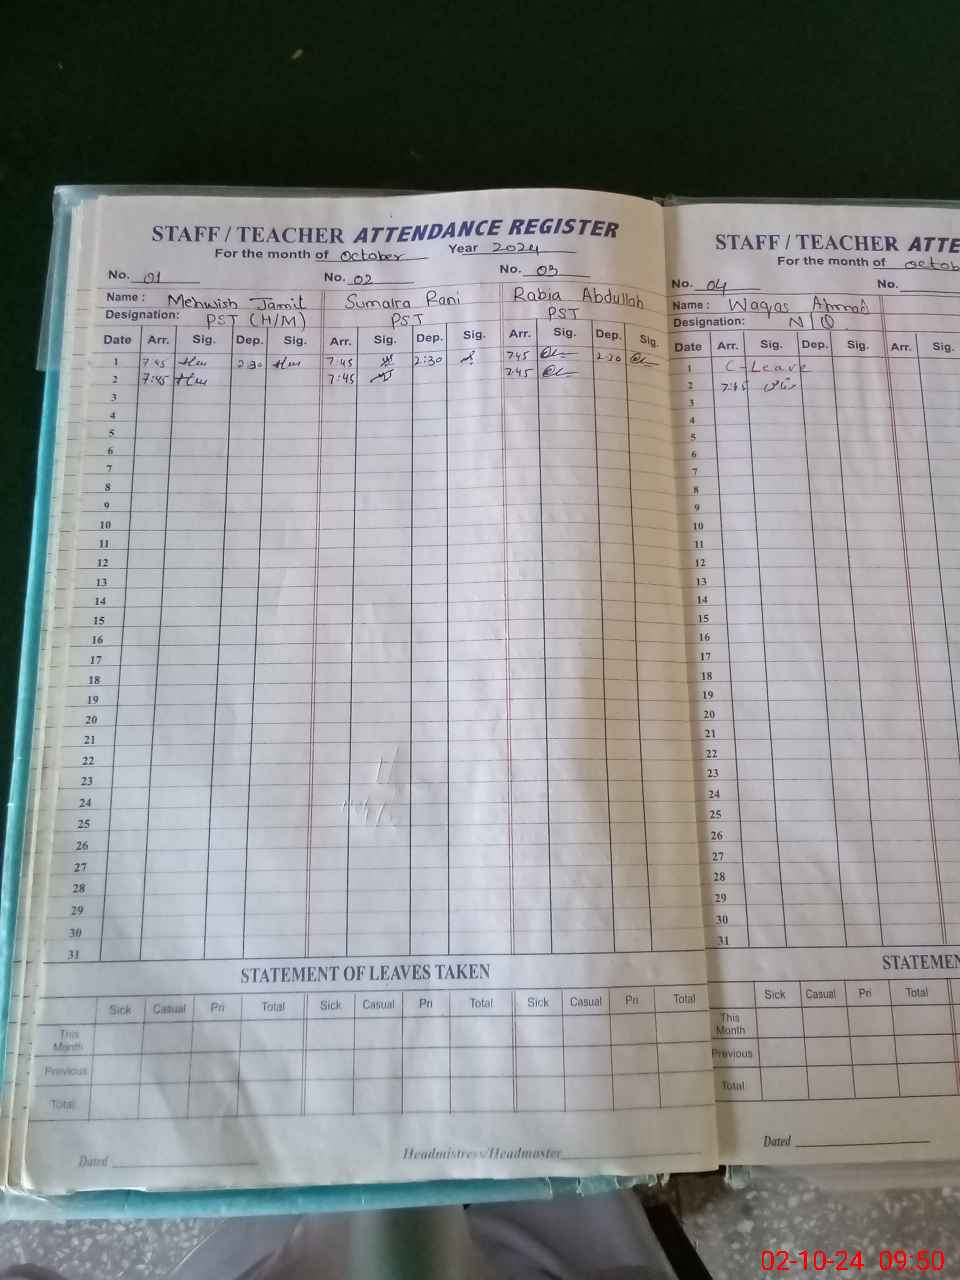 STAFF / TEACHER ATTENDANCE REGISTER
For the month of October Year 2024
No. 01 No. 02 No. 03
Name : Mehwish Jamil Sumaira Rani Rabia Abdullah
Designation: PST (H/M) PST PST
Date Arr. Sig. Dep. Sig. Arr. Sig. Dep. Sig. Arr. Sig. Dep. Sig.
1 7:45 2:30 7:45 2:30 7:45 2:30
2 7:45 7:45 7:45
3
4
5
6
7
8
9
10
11
12
13
14
15
16
17
18
19
20
21
22
23
24
25
26
27
28
29
30
31
STATEMENT OF LEAVES TAKEN
Sick Casual Pri Total Sick Casual Pri Total Sick Casual Pri Total
This
Month
Previous
Total
Dated Headmistress/Headmaster
STAFF / TEACHER ATTE
For the month of octob
No. 04 No.
Name : Waqas Ahmad
Designation: N/Q
Date Arr. Sig. Dep. Sig. Arr. Sig.
1 C-Leave
2 7:45
3
4
5
6
7
8
9
10
11
12
13
14
15
16
17
18
19
20
21
22
23
24
25
26
27
28
29
30
31
STATEMEN
Sick Casual Pri Total
This
Month
Previous
Total
Dated
02-10-24 09:50